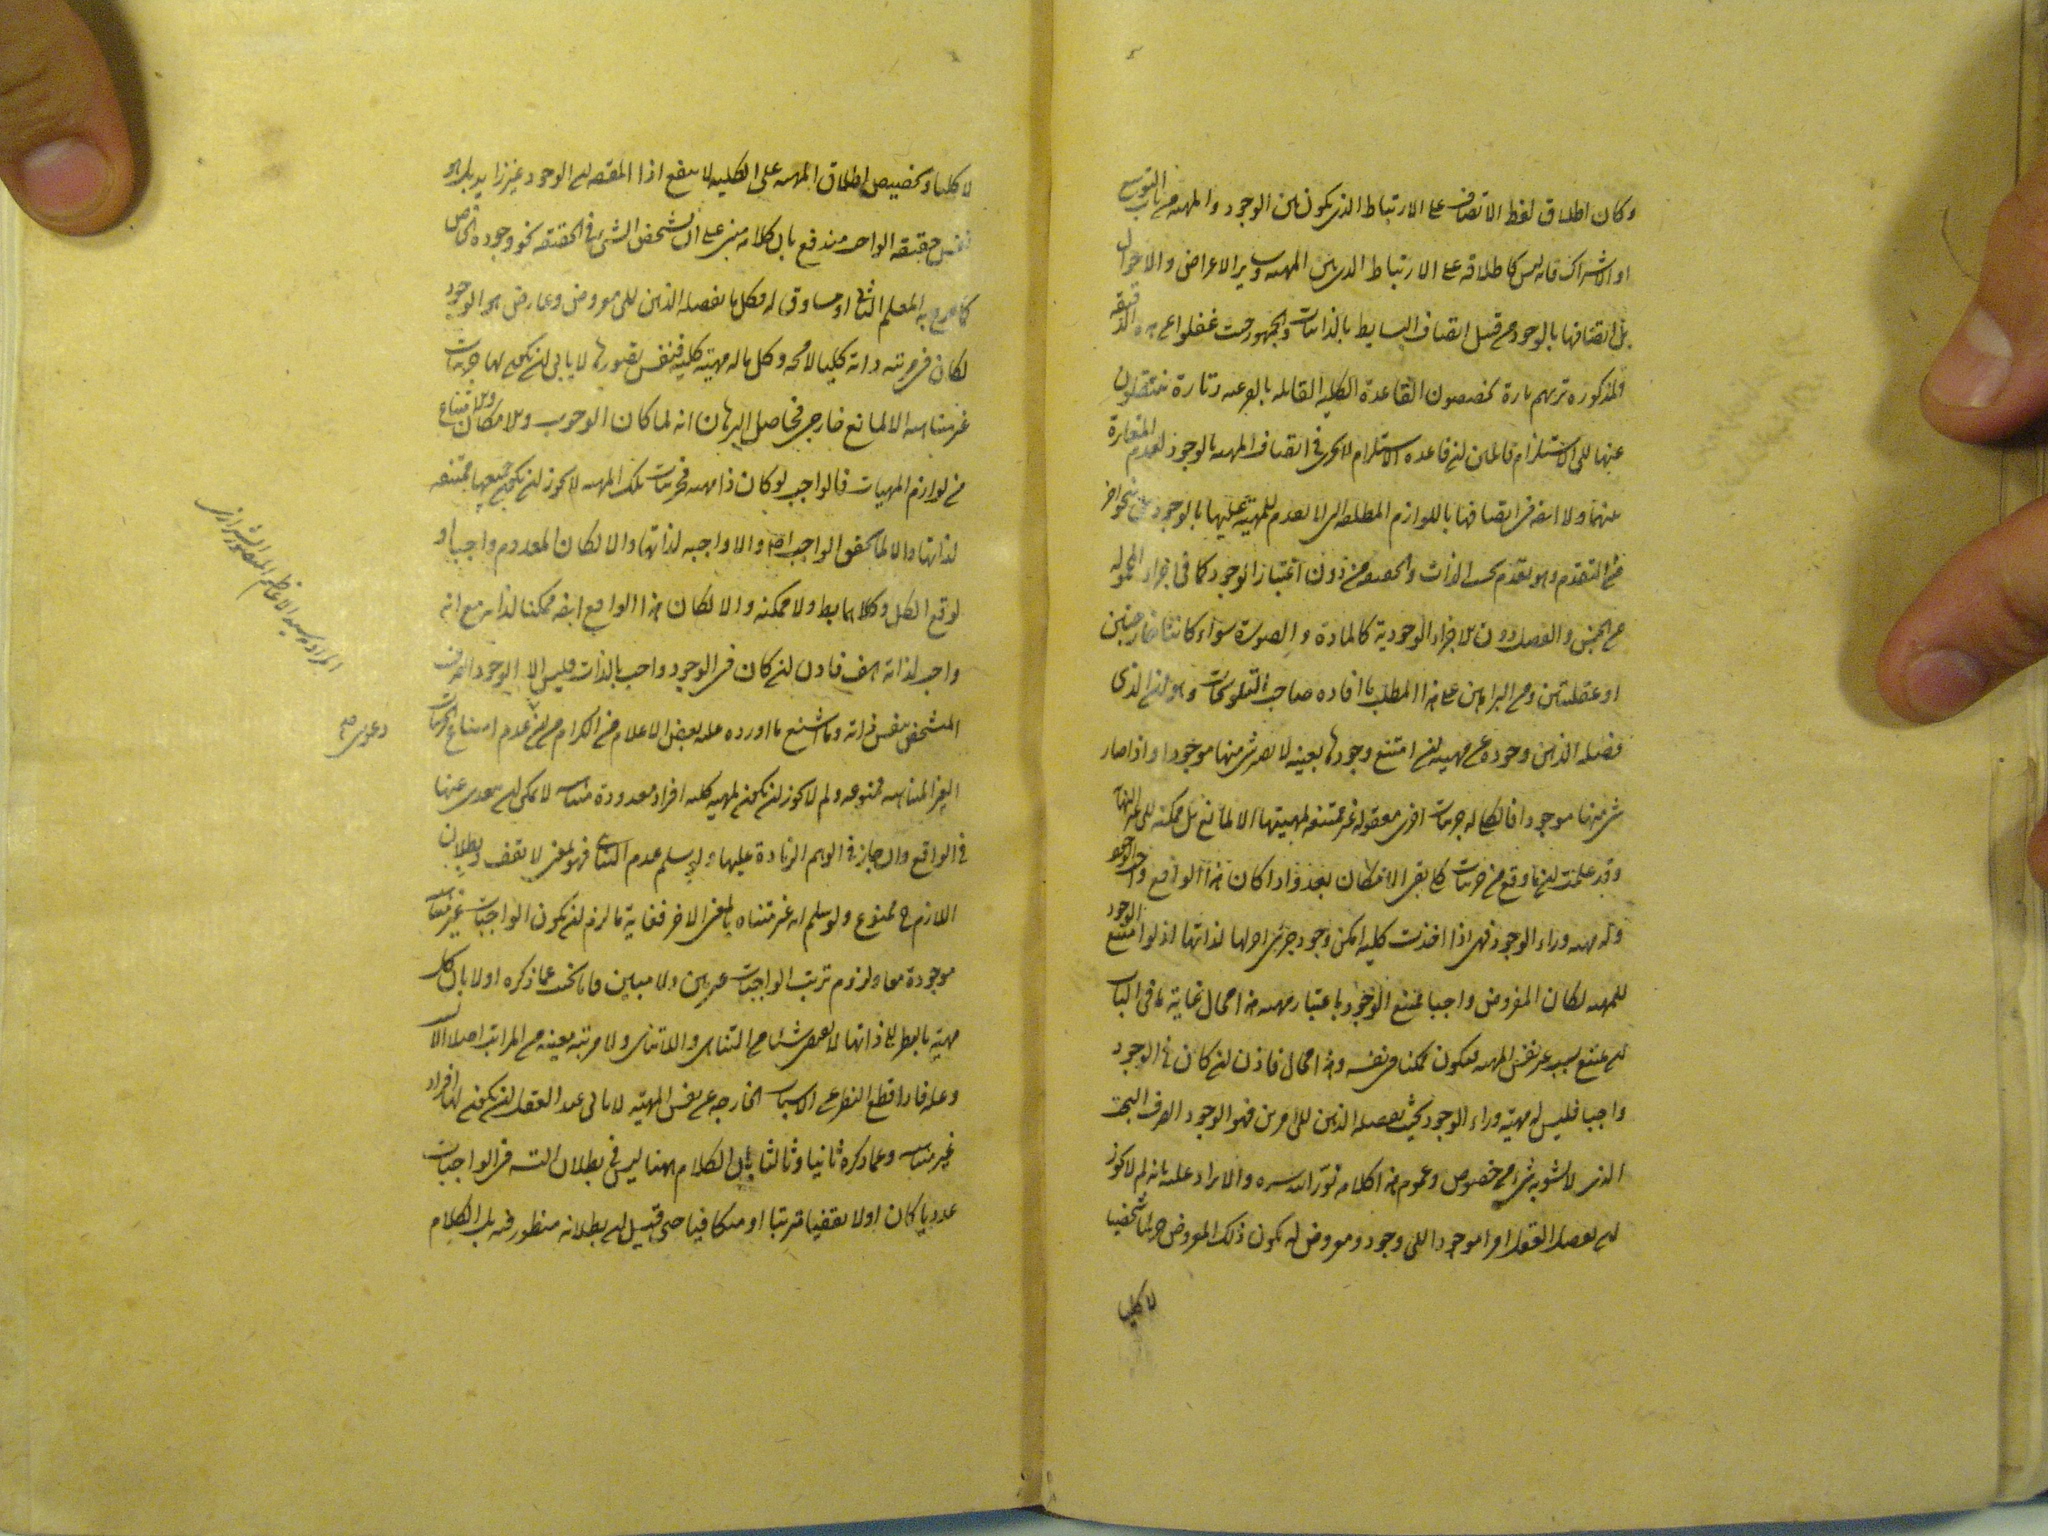 وكان اطلاق لفظ الاتصاف على الارتباط الذى يكون بين الوجود والمهية من باب التوسع
او الاشتراك فانه ليس كاطلاقه على الارتباط الذى بين المهية وساير الاعراض والاحوال
بل اتصافها بالوجود من قبيل اتصاف البسايط بالذاتيات والجمهور حيث غفلوا عن هذه الدقيقة
المذكورة تريهم تارة يخصصون القاعدة الكلية القايلة بالفرعية وتارة ينتقلون
عنها الى الاستلزام قائلين ان قاعدة الاستلزام لا يجرى فى اتصاف المهية بالوجود لعدم المغايرة
عنهما ولا ايضا فى اتصافها باللوازم المطلقة التى لا تقدم للمهية عليها بالوجود بل نحو اخر
من التقدم وهو تقدم بحسب الذات والحقيقة من دون اعتبار الوجود كما فى اجزاء المحمولة
من الجنس والفصل دون الاجزاء الوجودية كالمادة والصورة سواء كانتا خارجتين
او عقليتين ومن البراهين على هذا المطلب ما افاده صاحب التلويحات وهو ان الذى
فصل الذهن وجوده عن مهيته ان امتنع وجودها بعينه لا يصير شئ منها موجودا واذا صار
شئ منها موجودا فالكلى له جزئيات اخرى معقولة غير ممتنعة لمهيتها الا لمانع بل ممكنة الى غير النهاية
وقد علمت ان ما وقع من جزئيات كلى بقى الامكان بعد فاذا كان هذا الواقع واجب الوجود
وله مهية وراء الوجود فهى اذا اخذت كلية امكن وجود جزئى اخر لها لذاتها اذ لو امتنع الوجود
للمهية لكان المفروض واجبا ممتنع الوجود باعتبار مهيته هذا محال غاية ما فى الباب
ان يمتنع بسبب غير نفس المهية فيكون ممكنا فى نفسه وهذا محال فاذن ان كان فى الوجود
واجبا فليس له مهية وراء الوجود بحيث يفصله الذهن الى امرين فهو الوجود الصرف البحت
الذى لا يشوبه شئ من خصوص وعموم هذا كلامه نور الله سره والايراد عليه بانه لم لا يجوز
ان يفصل العقل امرا موجودا الى وجود ومعروض له يكون ذلك المعروض جزئيا شخصيا
لا كليا
لا كليا وتخصيص اطلاق المهية على الكلية لا ينفع اذا المقصود ان الوجود غير زايد بل هو
نفس حقيقة الواجب مندفع بان كلامه مبنى على ان تشخص الشئ فى الحقيقة نحو وجوده الخاص
كما صرح به المعلم الثانى او مساوق له فكل ما يفصله الذهن الى معروض وعارض هو الوجود
لكان فى مرتبة ذاته كليا لا محة وكل ما له مهية كلية فنفس تصورها لا يابى ان يكون لها جزئيات
غير متناهية الا لمانع خارجى فحاصل البرهان انه لما كان الوجوب والامكان والامتناع
من لوازم المهيات فالواجب لو كان ذا مهية فجزئيات تلك المهية لا يجوز ان يكون جميعها ممتنعة
لذاتها والا لما تحقق الواجب ايضا والا واجبة لذاتها والا لكان المعدوم واجبا او
لوقع الكل وكلاهما بط ولا ممكنة والا لكان هذا الواقع ايضا ممكنا لذاته مع انه
واجب لذاته هف فاذن ان كان فى الوجود واجب بالذات فليس الا الوجود الصرف
المتشخص بنفس ذاته وما اشنع ما اورده عليه بعض الاعلام من الكرام من ان عدم امتناع الجزئيات
الغير المتناهية ممنوعة ولم لا يجوز ان يكون لمهية كلية افراد معدودة متناهية لا يمكن ان يتعدى عنها
فى الواقع وان جاز فى الوهم الزيادة عليها ولو سلم عدم التناهى فهو بمعنى لا يقف وبطلان
اللازم ح ممنوع ولو سلم انه غير متناه بالمعنى الاخر فغاية ما لزم ان يكون الواجبات غير متناهية
موجودة معا ولزوم ترتب الواجبات غير بين ولا مبين فانا نجيب عما ذكره اولا بان كل
مهية بالنظر الى ذاتها لا يقتضى شيئا من التناهى واللاتناهى ولا مرتبة معينة من المراتب اصلا الا لسبب
وعلة فاذا قطع النظر عن الاسباب الخارجة عن نفس المهية لا يابى عند العقل ان يكون لها افراد
غير متناهية وعما ذكره ثانيا وثالثا بان الكلام ههنا ليس فى بطلان التسلسل فى الواجبات
عدديا كان او لا يقفيا مترتبا او متكافيا حتى قيل ان بطلانه منظور فيه بل الكلام
المراد سيد الاعاظم المنصور الشيرازى
دعوى